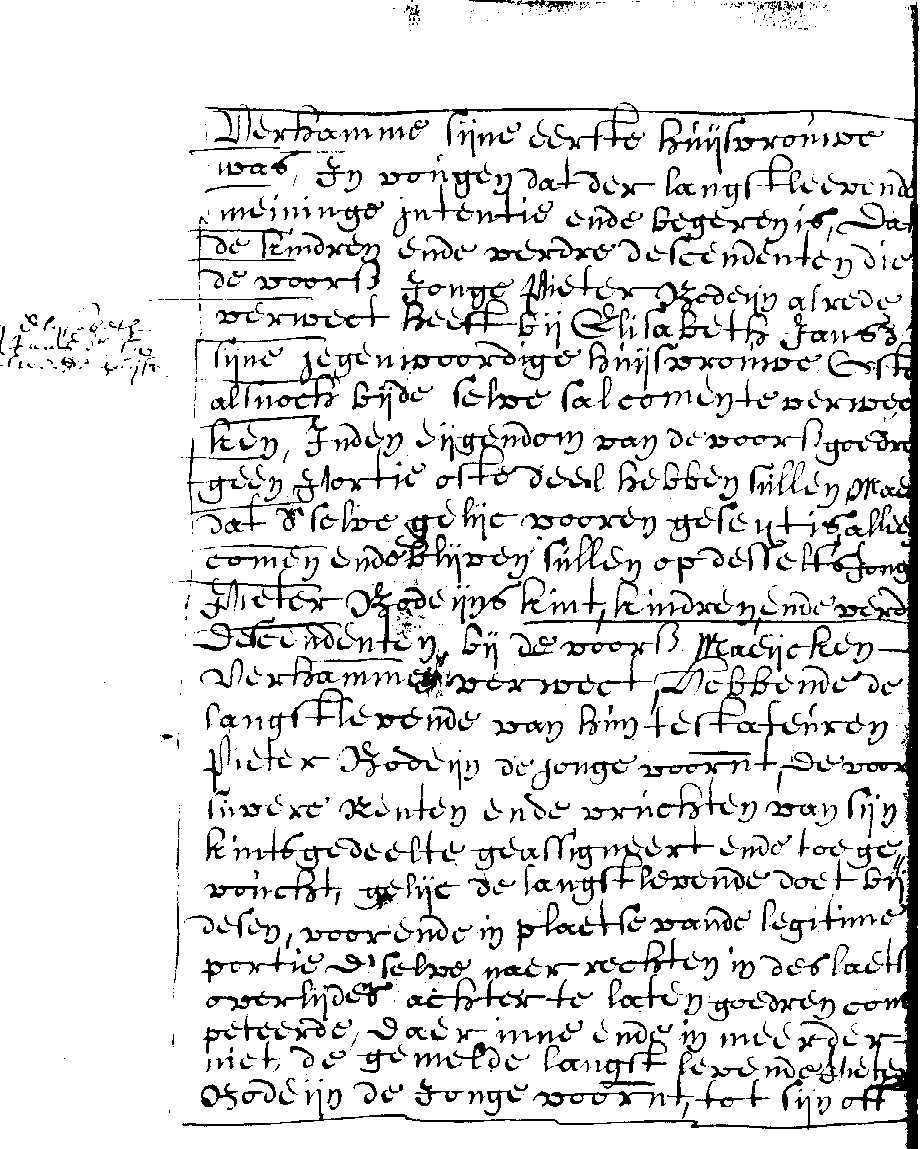 Verhamme sijne eerste huijsvrouwe
was, In vougen dat der langstleevende
meininge intentie ende begeren is, Dat
de kindren ende verdre descendenten die
de voors Jonge Pieter Bodeijn alrede
verwect heeft bij Elisabeth Jans
sijne jegenwoordige huijsvrouwe Ofte
alsnoch bijde selve sal comen te verwec
ken, Inden eijgendom van de voors goedren
geen Portie ofte deel hebben sullen Maer
dat dselve gelijc vooren geseijt is, allee
comen ende blijven sullen op desselfs Jong
Pieter Bodeijns kint, kindren, ende verdre
Descendenten, bij de voors Maeijcken
Verhamme verwect, Hebbende de
langstlevende van hun testateuren
Pieter Bodeijn de jonge voornt, De voor
suvere Renten ende vruchten van sijn
kintsgedeelte geassigneert ende toege
voucht, gelijc de langstlevende doet bij
desen, voor ende in plaetse vande legitime
portie dselve naer rechten in des laets
overlijdes achter te laten goedren com
peteerde, Daer inne ende in meerder
niet, de gemelde langst levende Pieter
Bodeijn de Jonge voornt, tot sijn off